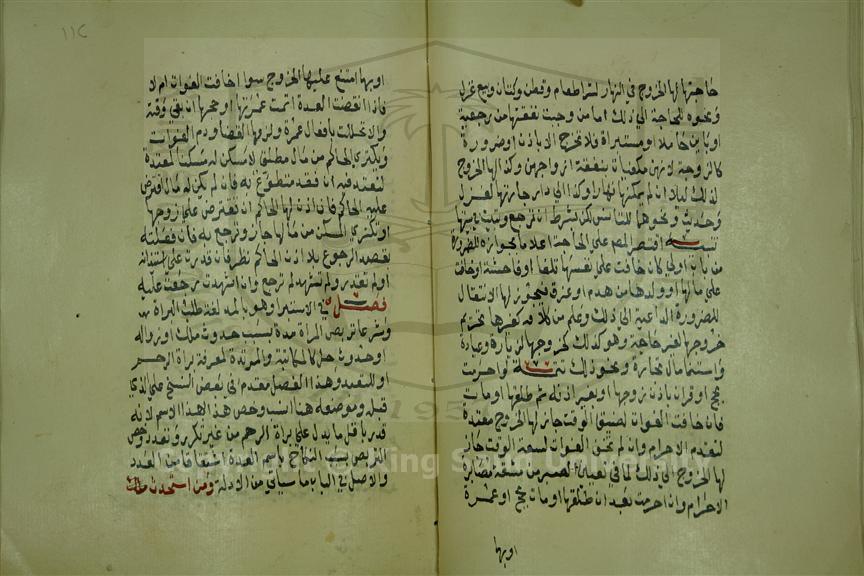 حاجتها لها الخروج في النهار لشرا طعام وقطن وكتان وبيع غزل
ونحوه للحاجة الي ذلك اما من وجبت نفقتها من رجعية
او باين حاملا او مستبراة فلا تخرج الا باذن او ضرورة
كالزوجة لانهن مكفيات بنفقة ازواجهن وكذا لها الخروج
لذلك ليلا ان لم يمكنها نهارا وكذا الي دار جارتها لغزل
وحديث ونحوهما للتانس لكن بشرط ان ترجع وتبيت في بيتها
تنبيه اقتصر المص علي الحاجة اعلاما بجوازه للضرورة
من باب اولي كان خافت علي نفسها تلفا او فاحشة او خافت
علي مالها او ولدها من هدم او غرق فيجوز لها الانتقال
للضرورة الداعية الي ذلك وعلم من كلامه كغيره تحريم
خروجها لغير حاجة وهو كذلك كخروجها لزيارة وعيادة
واستنما مال تجارة ونحو ذلك تتمة لو احرمت
بحج او قران باذن زوجها او بغير اذنه ثم طلقها او مات
فان خافت الفوات لضيق الوقت جاز لها الخروج معتدة
لتقدم الاحرام وان لم تخف الفوات لسعة الوقت جاز
لها الخروج الي ذلك لما في تعيين الصبر من مشقة مصابرة
الاحرام وان احرمت بعد ان طلقها او مات بحج او عمرة
او بها
١١٤
او بها امتنع عليها الخروج سوا اخافت الفوات ام لا
فاذا انقضت العدة اتمت عمرتها او حجها ان بقي وقته
والا تحللت بافعال عمرة ولزمها القضا ودم الفوات
ويكتري الحاكم من مال مطلق لا مسكن له مسكنا لمعتدة
لتعتد فيه ان فقد متطوع به فان لم يكن له مال اقترض
عليه الحاكم فان اذن لها الحاكم ان تقترض علي زوجها
او تكتري المسكن من مالها جاز وترجع به فان فعلته
بقصد الرجوع بلا اذن الحاكم نظر فان قدرت علي استئذانه
او لم تقدر ولم تشهد لم ترجع وان اشهدت رجعت عليه
فصل في الاستبرا وهو بالمد لغة طلب البراة
وشرعا تربص المراة مدة بسبب حدوث ملك او زواله
او حدوث حل كالمكاتبة والمرتدة لمعرفة براة الرحم
او للتعبد وهذا الفصل مقدم في بعض النسخ علي الذي
قبله وموضعه هنا انسب وخص هذا بهذا الاسم لانه
قدر باقل ما يدل علي براة الرحم من غير تكرر وتعدد وخص
التربص بسبب النكاح باسم العدة اشتقاقا من العدد
والاصل في الباب ما سياتي من الادلة ومن استحدث ملك